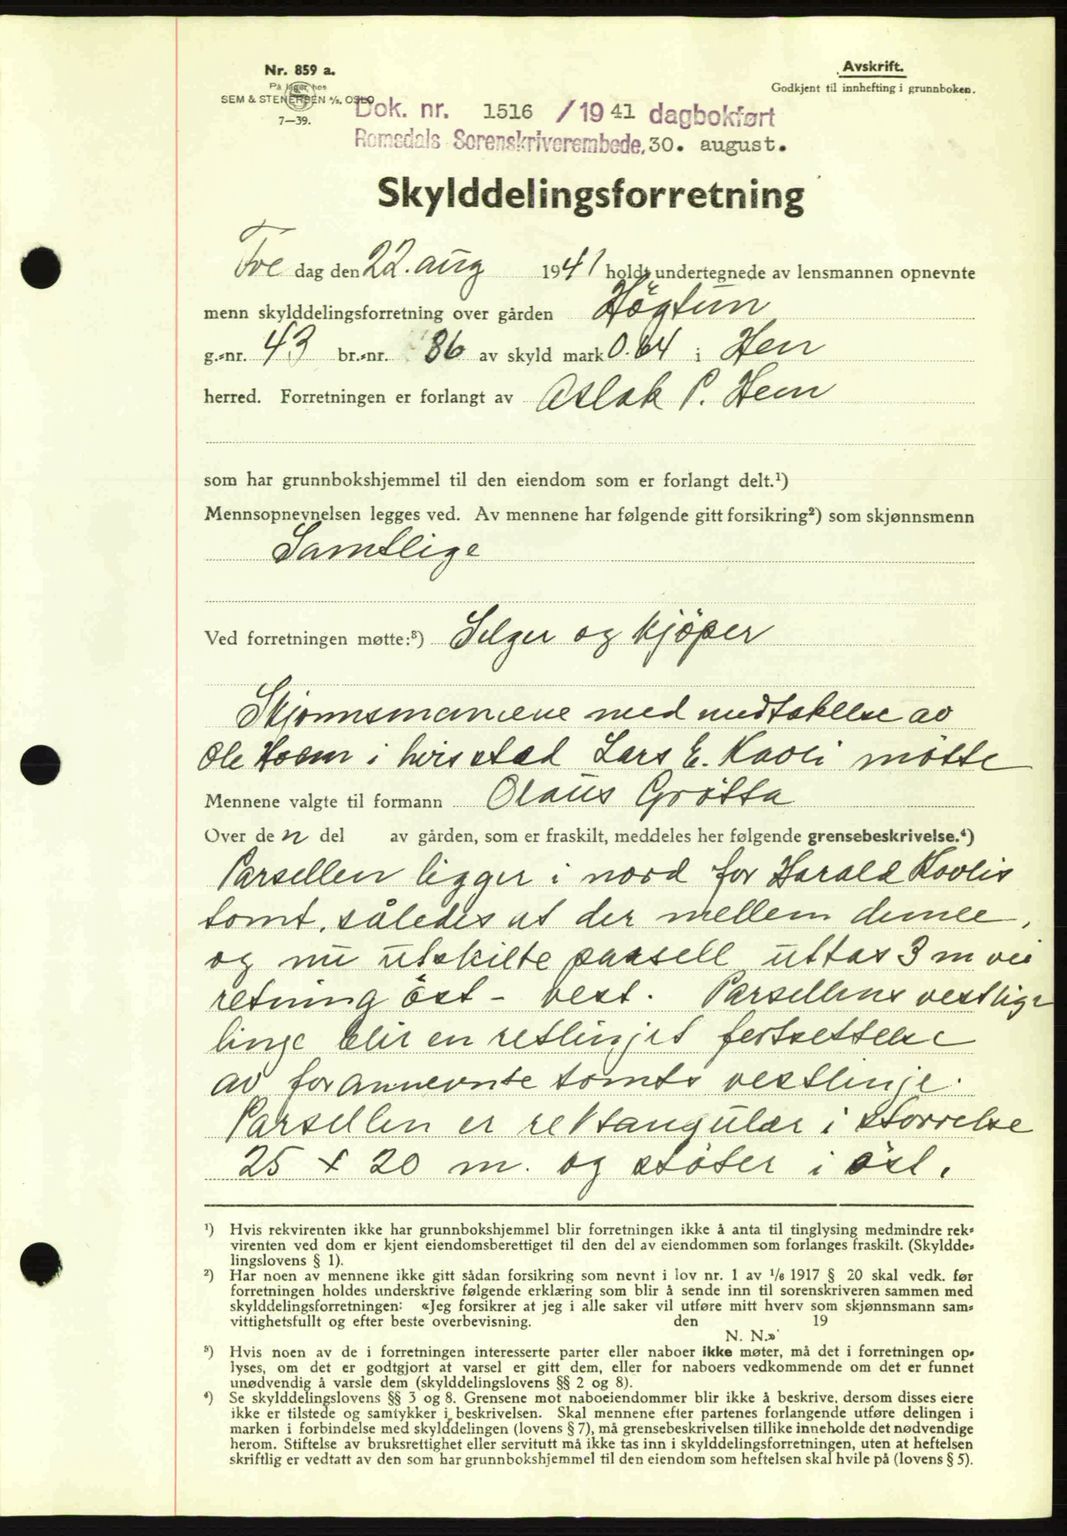 Nr. 859 a.
På lager hos
SEM & STENERSEN A/S, OSLO
7—39.
Avskrift.
Godkjent til innhefting i grunnboken.
Dok. nr. 1516 / 19 41 dagbokført
Romsdals Sorenskriverembede, 30. august.
Skylddelingsforretning
Fre dag den 22. aug 1941 holdt undertegnede av lensmannen opnevnte
menn skylddelingsforretning over gården Høgtun
g.-nr. 43 br.-nr. 86 av skyld mark 0.64 i Hen
herred. Forretningen er forlangt av Aslak P. Hem
som har grunnbokshjemmel til den eiendom som er forlangt delt.¹)
Mennsopnevnelsen legges ved. Av mennene har følgende gitt forsikring²) som skjønnsmenn
Samtlige
Ved forretningen møtte:³) Selger og kjöper
Skjønnsmannene med undtakelse av
Ole i hvis sted Lars E. Kavli møtte
Mennene valgte til formann Olaus Grötta
Over den del av gården, som er fraskilt, meddeles her følgende grensebeskrivelse.⁴)
Parsellen ligger i nord for Harald Kavlis
tomt, således at der mellem denne,
og nu utskilte parsell uttas 3 m vei
retning öst - vest. Parsellens vestlige
linje blir en retlinjet fortsettelse
av forannevnte tomts vestlinje.
Parsellen er rektangulær i størrelse
25 x 20 m. og støter i öst,
¹) Hvis rekvirenten ikke har grunnbokshjemmel blir forretningen ikke å anta til tinglysing medmindre rek-
virenten ved dom er kjent eiendomsberettiget til den del av eiendommen som forlanges fraskilt. (Skyldde-
lingslovens § 1).
²) Har noen av mennene ikke gitt sådan forsikring som nevnt i lov nr. 1 av 1/6 1917 § 20 skal vedk. før
forretningen holdes underskrive følgende erklæring som blir å sende inn til sorenskriveren sammen med
skylddelingsforretningen: «Jeg forsikrer at jeg i alle saker vil utføre mitt hverv som skjønnsmann sam-
vittighetsfullt og efter beste overbevisning. den 19
N. N.»
³) Hvis noen av de i forretningen interesserte parter eller naboer ikke møter, må det i forretningen op-
lyses, om det er godtgjort at varsel er gitt dem, eller for naboers vedkommende om det er funnet
unødvendig å varsle dem (skylddelingslovens §§ 2 og 8).
⁴) Se skylddelingslovens §§ 3 og 8. Grensene mot naboeiendommer blir ikke å beskrive, dersom disses eiere
ikke er tilstede og samtykker i beskrivelsen. Skal mennene efter partenes forlangende utføre delingen i
marken i forbindelse med skylddelingen (lovens § 7), må grensebeskrivelsen tillike inneholde det nødvendige
herom. Stiftelse av bruksrettighet eller servitutt må ikke tas inn i skylddelingsforretningen, uten at heftelsen
skriftlig er vedtatt av den som har grunnbokshjemmel til den eiendom som heftelsen skal hvile på (lovens § 5).